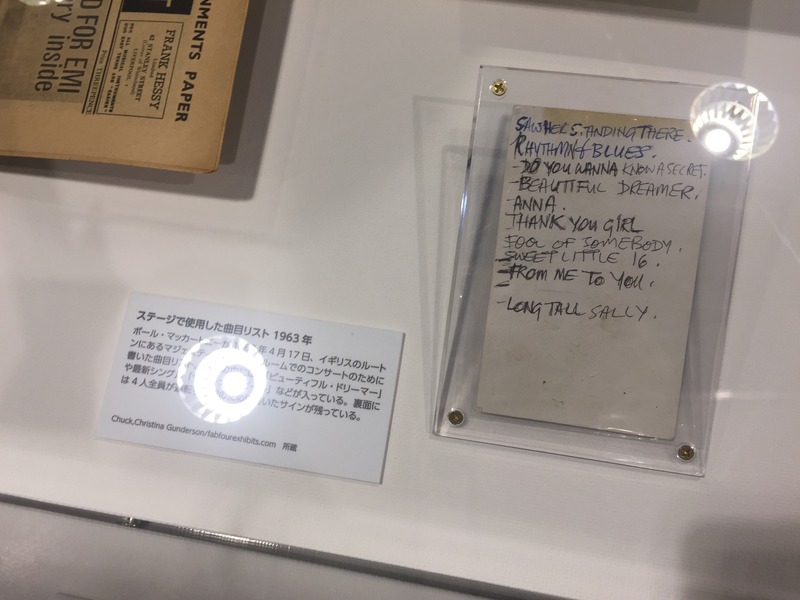 NMENTS PAPER
FRANK HESSY
LIMITED
62 STANLEY STREET
(Corner of Whitechapel)
LIVERPOOL, 1
FOR ALL MUSICAL INSTRUMENTS
Price THREEPENCE
D FOR EMI
ry inside
SAW HER S.ANDING THERE.
RHYTHMN & BLUES.
-DO YOU WANNA KNOW A SECRET.
-BEAUTIFUL DREAMER.
-ANNA.
THANK YOU GIRL
FOOL OF SOMEBODY.
SWEET LITTLE 16.
FROM ME TO YOU.
-LONG TALL SALLY.
ステージで使用した曲目リスト 1963年
ポール・マッカートニーが 年4月17日、イギリスのルート
ンにあるマジェ ルームでのコンサートのために
書いた曲目リ 「ビューティフル・ドリーマー」
や最新シング などが入っている。裏面に
は4人全員が いたサインが残っている。
Chuck,Christina Gunderson/fabfourexhibits.com 所蔵